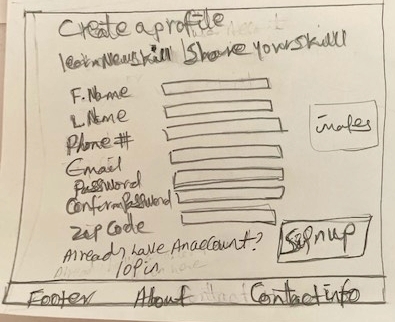 Create a profile
learn New skill | Share your skill
F. Name
L Name
Phone #
Email
Password
Confirm Password
Zip Code
Already have An account?
login
Signup
Footer About Contact info